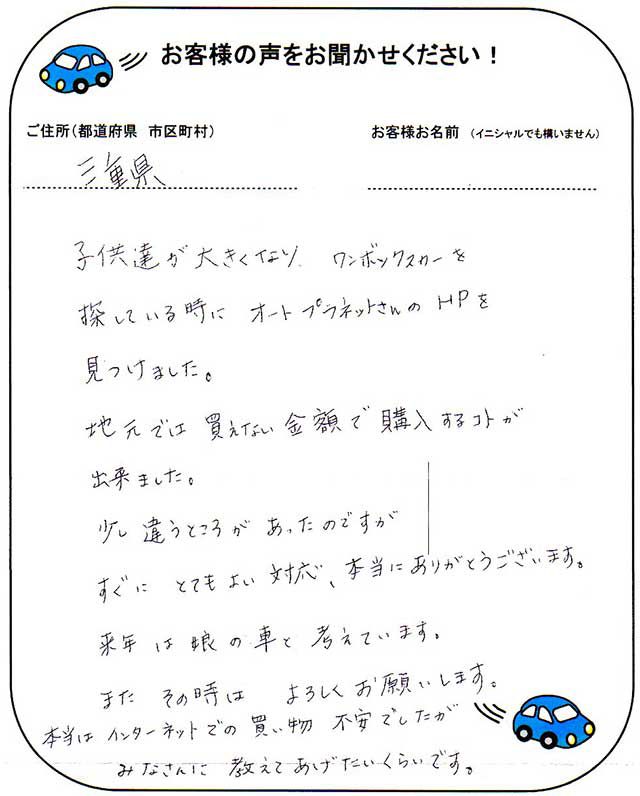 お客様の声をお聞かせください！
ご住所（都道府県　市区町村）
お客様お名前　（イニシャルでも構いません）
三重県
子供達が大きくなり、ワンボックスカーを
探している時に オートプラネットさんの HPを
見つけました。
地元では 買えない 金額で 購入するコトが
出来ました。
少し違うところが あったのですが
すぐに とてもよい 対応、本当にありがとうございます。
来年は娘の車と 考えています。
また その時は よろしくお願いします。
本当は インターネットでの 買い物 不安でしたが
みなさんに 教えてあげたいくらいです。